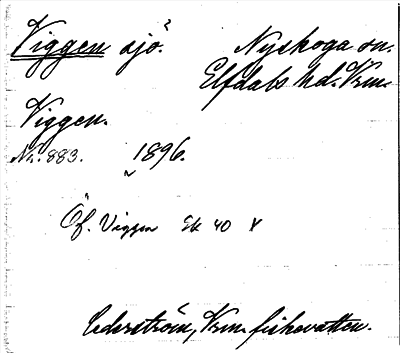 Viggen sjö. Nyskoga sn.
Elfdals hd. Vrm.
Viggen.
Nr. 883. 1896.
Öf. Viggen Ek 40 
Cederström, Vrm. fiskevatten.